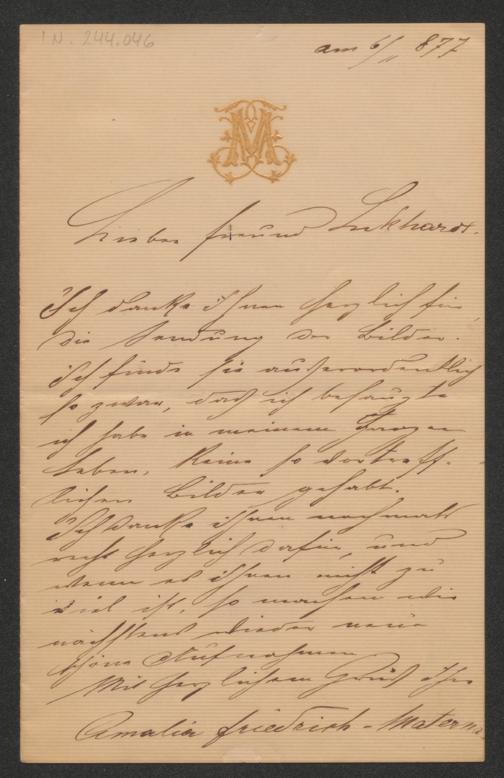 I.N. 244.046
am 6/11 877
M
Lieber Freund Lukhardt.
Ich danke Ihnen herzlich für
die Sendung der Bilder.
ich finde sie außerordentlich
so zwar, daß ich behaupte
ich habe in meinem ganzen
Leben, keine so vortreff-
lichen Bilder gehabt.
Ich danke ihnen nochmals
recht herzlich dafür, und
wenn es ihnen nicht zu
viel ist, so machen wir
nächstens wieder neue
schöne Aufnahmen
Mit herzlichem Gruß ihre
Amalia Friedrich-Materna